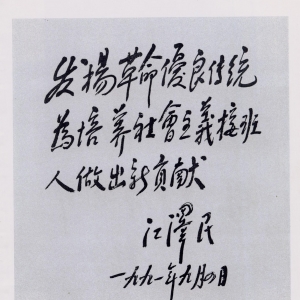 发揚革命優良传统
為培养社會主義接班
人做出新贡献
江澤民
一九九一年九月四日